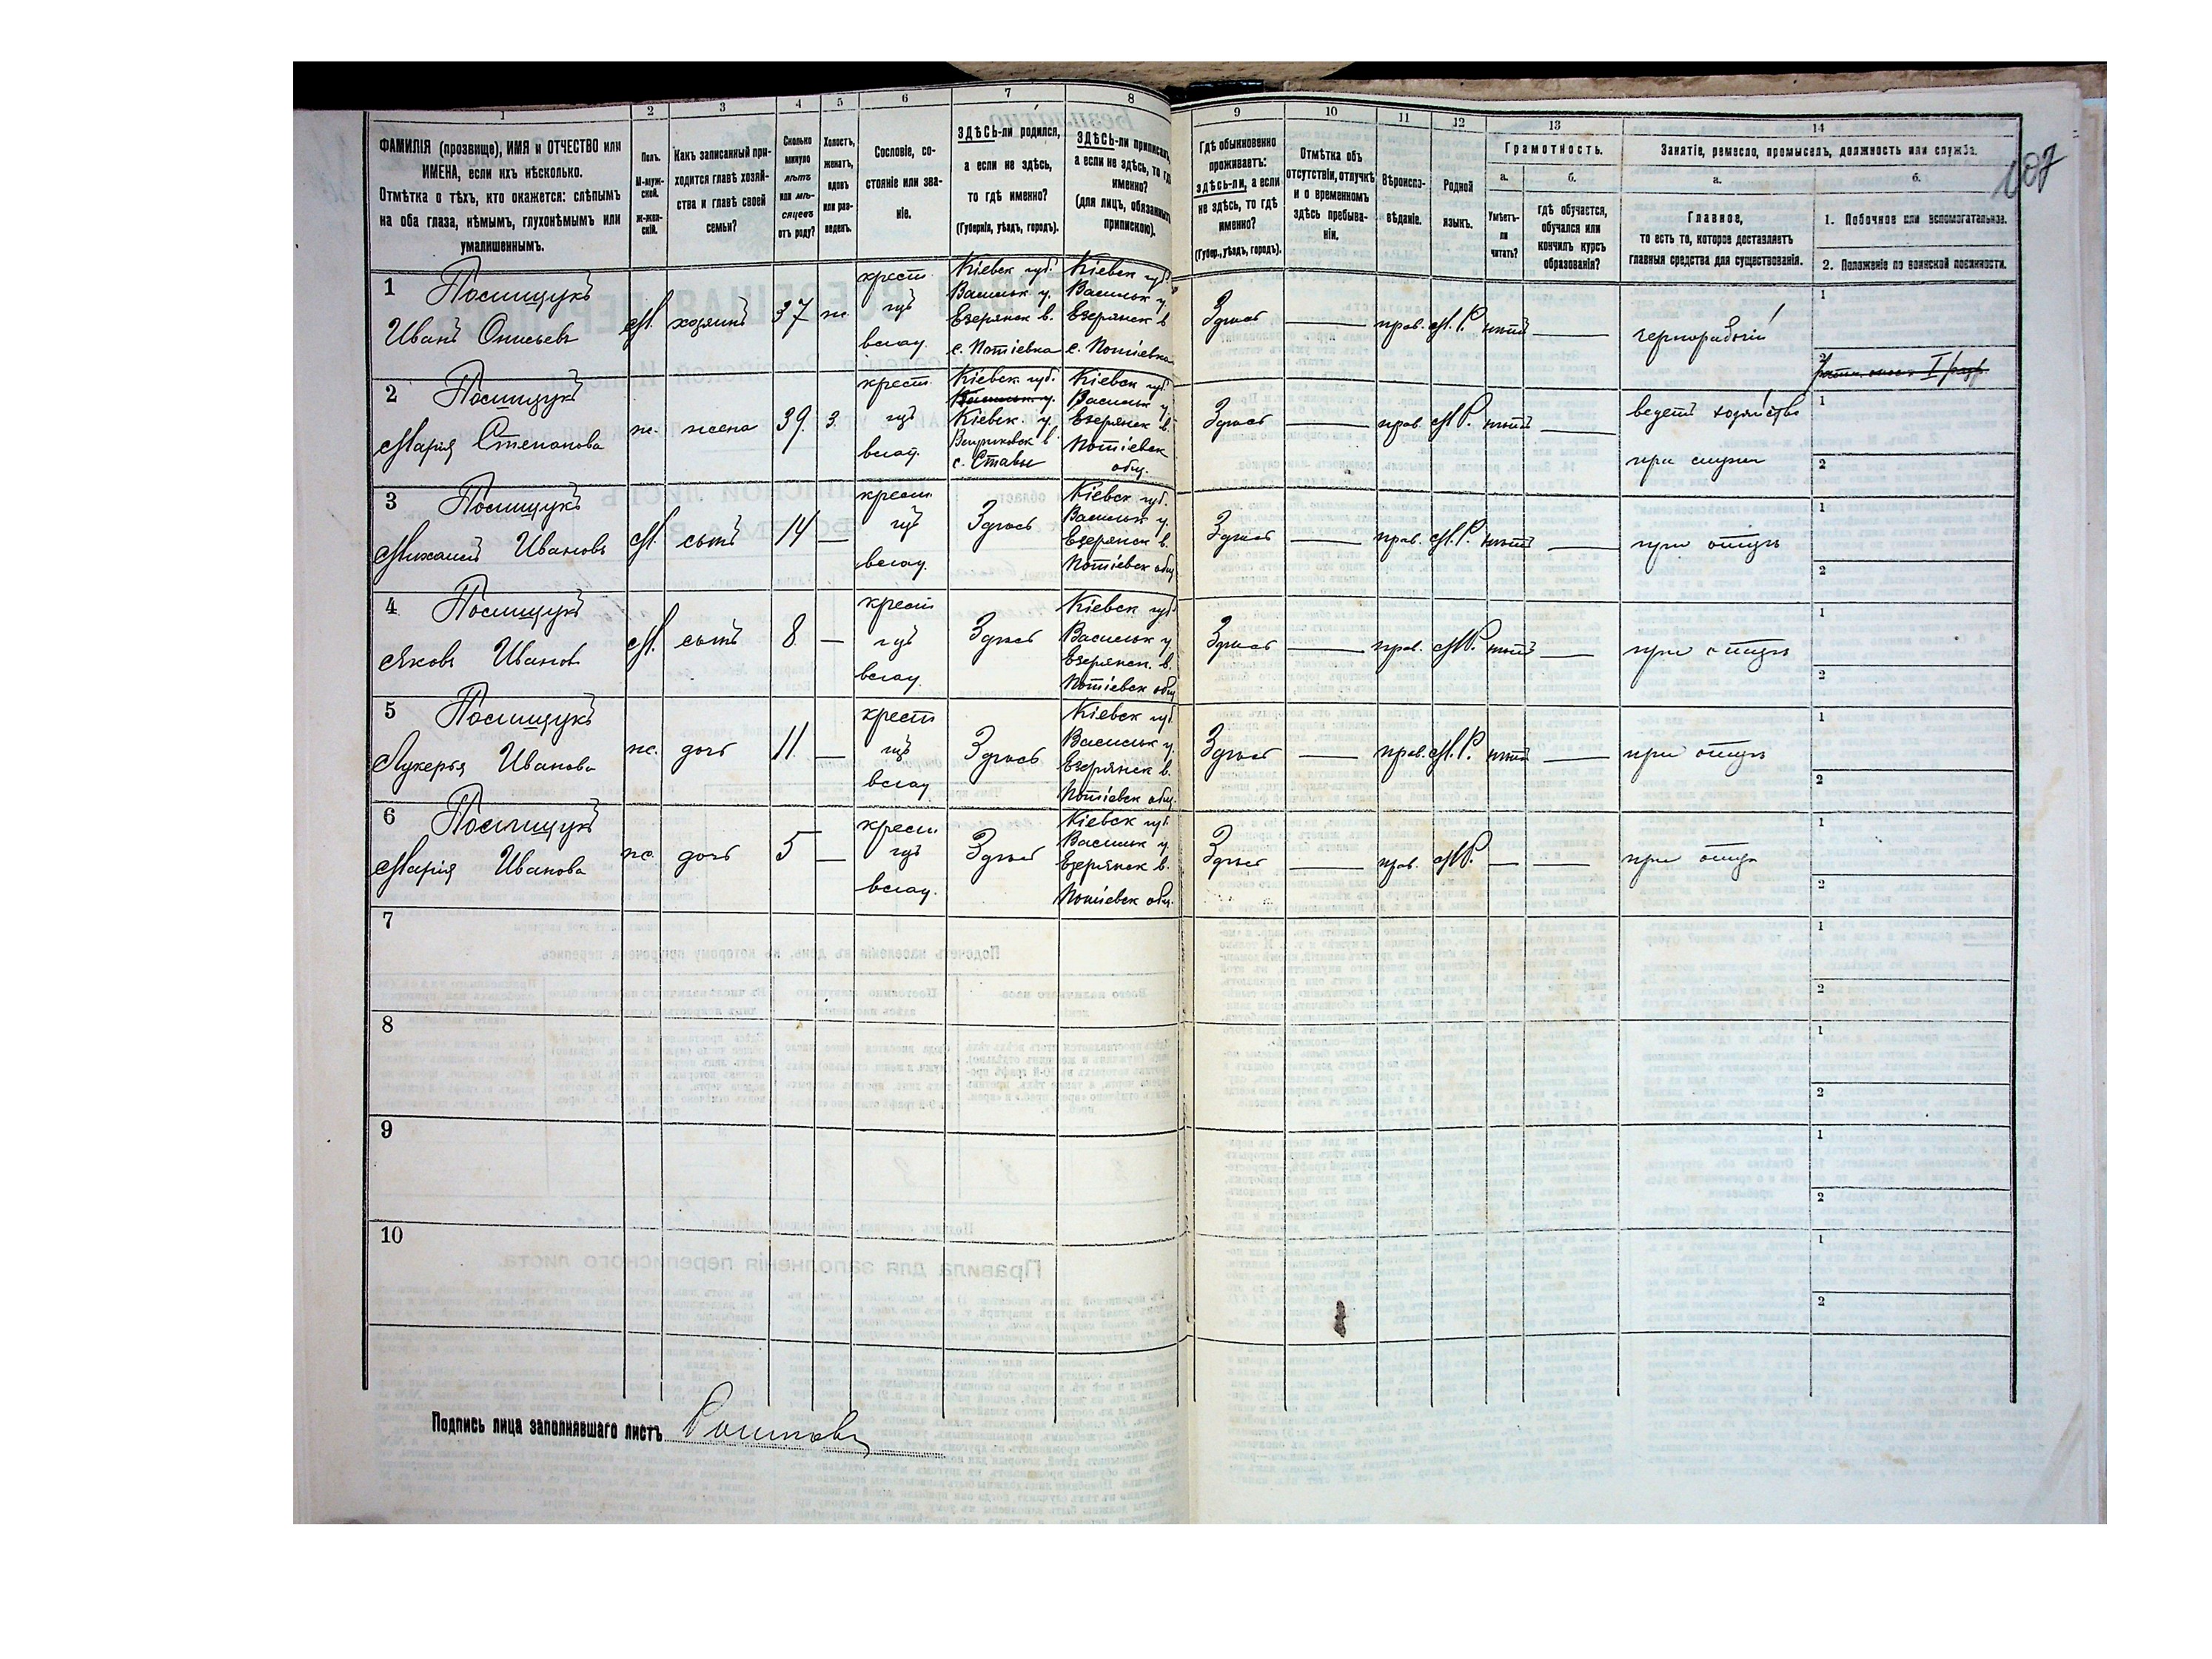 1 2 3 4 5 6 7 8 9 10 11 12 13 14
107
ФАМИЛІЯ (прозвище), ИМЯ и ОТЧЕСТВО или
ИМЕНА, если ихъ нѣсколько.
Отмѣтка о тѣхъ, кто окажется: слѣпымъ
на оба глаза, нѣмымъ, глухонѣмымъ или
умалишеннымъ.
Полъ.
М-муж-
ской.
Ж-жен-
скій.
Какъ записанный при-
ходится главѣ хозяй-
ства и главѣ своей
семьи?
Сколько
минуло
лѣтъ
или мѣ-
сяцевъ
отъ роду?
Холостъ,
женатъ,
вдовъ
или раз-
веденъ.
Сословіе, со-
стояніе или зва-
ніе.
ЗДѢСЬ-ли родился,
а если не здѣсь,
то гдѣ именно?
(Губернія, уѣздъ, городъ).
ЗДѢСЬ-ли приписанъ,
а если не здѣсь, то гдѣ
именно?
(для лицъ, обязанныхъ
припискою).
Гдѣ обыкновенно
проживаетъ:
здѣсь-ли, а если
не здѣсь, то гдѣ
именно?
(Губер., уѣздъ, городъ).
Отмѣтка объ
отсутствіи, отлучкѣ
и о временномъ
здѣсь пребыва-
ніи.
Вѣроиспо-
вѣданіе.
Родной
языкъ.
Грамотность.
а.
Умѣетъ-
ли
читать?
б.
гдѣ обучается,
обучался или
кончилъ курсъ
образованія?
Занятіе, ремесло, промыселъ, должность или служба.
а.
Главное,
то есть то, которое доставляетъ
главныя средства для существованія.
б.
1. Побочное или вспомогательное.
2. Положеніе по воинской повинности.
1
Посищукъ
Иванъ
М.
хозяинъ
37
ж.
крест.
Кіевск губ.
Васильк у.
Езерянск в.
с. Потіевка
Кіевск губ.
Васильк у.
Езерянск в
с. Потіевка
Здѣсь
прав.
М.Р.
нѣтъ
чернорабочій
1
2
2
Посищукъ
Марія Степанова
ж.
жена
39
З.
крест.
Кіевск. губ.
Васильк. у.
Кіевск. у.
с. Ставы
Кіевск губ.
Васильк у.
Езерянск в.
Потіевск
общ.
Здѣсь
прав.
М.Р.
нѣтъ
ведетъ хозяйство
при
1
2
3
Посищукъ
Михаилъ Ивановъ
М.
сынъ
14
крест.
Здѣсь
Кіевск губ.
Васильк у.
Езерянск в.
Потіевск общ
Здѣсь
прав.
М.Р.
нѣтъ
при отцѣ
1
2
4
Посищукъ
Яковъ Иванов
М.
сынъ
8
крест
Здѣсь
Кіевск губ.
Васильк у.
Езерянск. в.
Потіевск общ
Здѣсь
прав.
М.Р.
нѣтъ
при отцѣ
1
2
5
Посищукъ
Лукерья Иванова
ж.
дочь
11
крест
Здѣсь
Кіевск губ
Васильк у.
Езерянск в.
Потіевск общ.
Здѣсь
прав.
М.Р.
нѣтъ
при отцѣ
1
2
6
Посищукъ
Марія Иванова
ж.
дочь
5
крест
Здѣсь
Кіевск губ.
Васильк у.
Езерянск в.
Потіевск общ.
Здѣсь
прав.
М.Р.
при отцѣ
1
2
7
1
2
8
1
2
9
1
2
10
1
2
Подпись лица заполнявшаго листъ